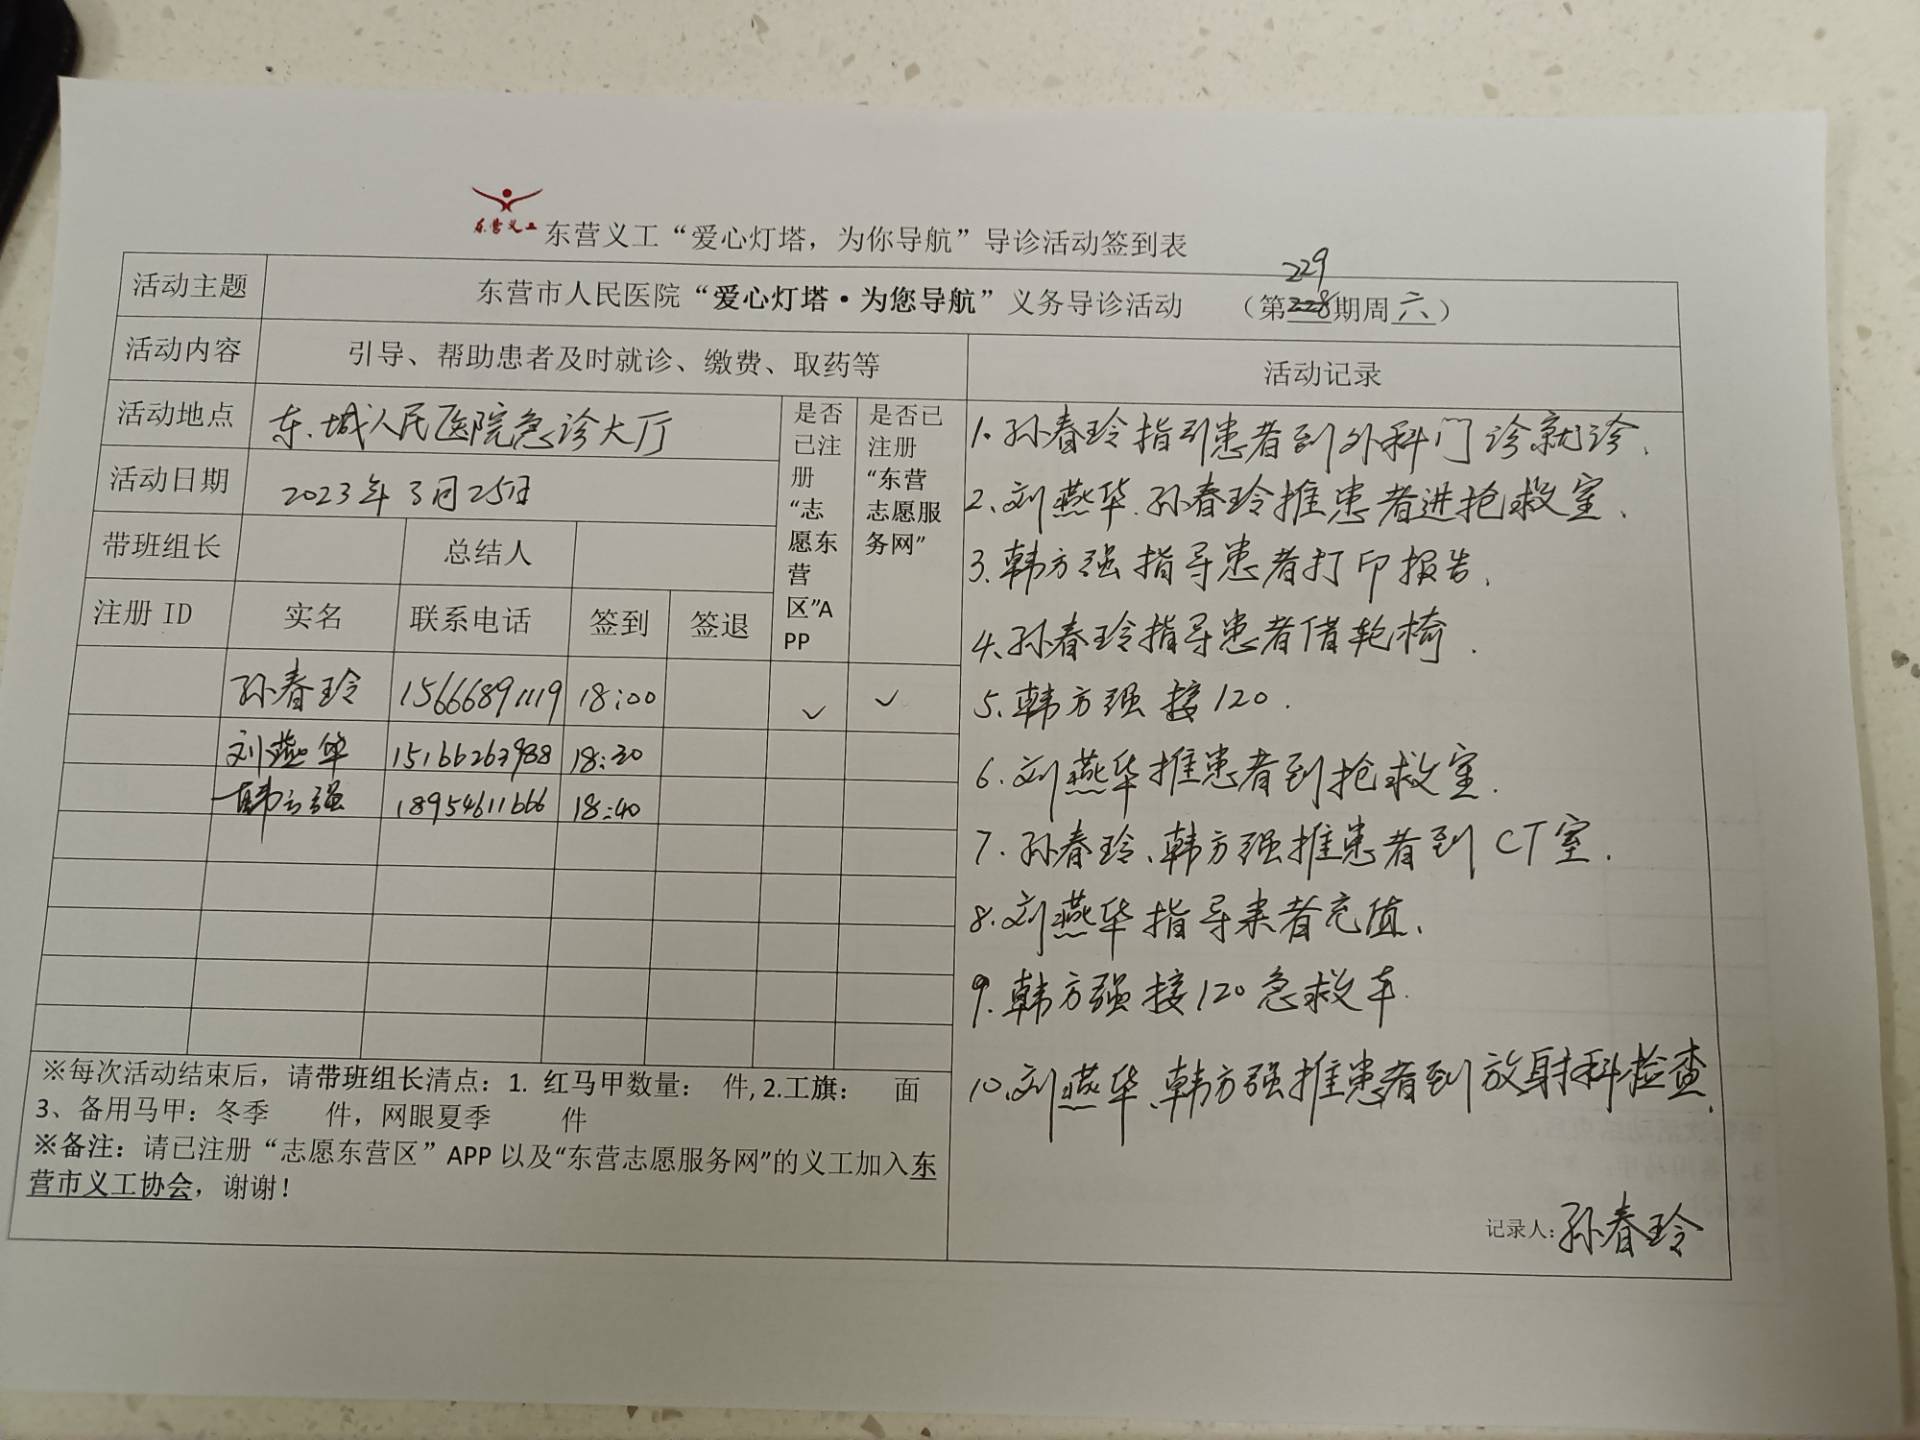 东营义工
东营义工“爱心灯塔，为你导航”导诊活动签到表
229
活动主题 东营市人民医院“爱心灯塔·为您导航”义务导诊活动 （第228期周六）
活动内容 引导、帮助患者及时就诊、缴费、取药等 活动记录
活动地点 东城人民医院急诊大厅
活动日期 2023年3月25日
带班组长 总结人
注册 ID 实名 联系电话 签到 签退
是否
已注
册
“志
愿东
营
区”A
PP
是否已
注册
“东营
志愿服
务网”
孙春玲 15666891119 18:00 ✓ ✓
刘燕华 15166263988 18:30
韩方强 18954611666 18:40
※每次活动结束后，请带班组长清点：1. 红马甲数量： 件，2.工旗： 面
3、备用马甲：冬季 件，网眼夏季 件
※备注：请已注册“志愿东营区”APP 以及“东营志愿服务网”的义工加入东
营市义工协会，谢谢！
1.孙春玲指引患者到外科门诊就诊.
2.刘燕华.孙春玲推患者进抢救室.
3.韩方强指导患者打印报告.
4.孙春玲指导患者借轮椅.
5.韩方强接120.
6.刘燕华推患者到抢救室.
7.孙春玲、韩方强推患者到CT室.
8.刘燕华指导患者充值.
9.韩方强接120急救车.
10.刘燕华、韩方强推患者到放射科检查.
记录人：孙春玲